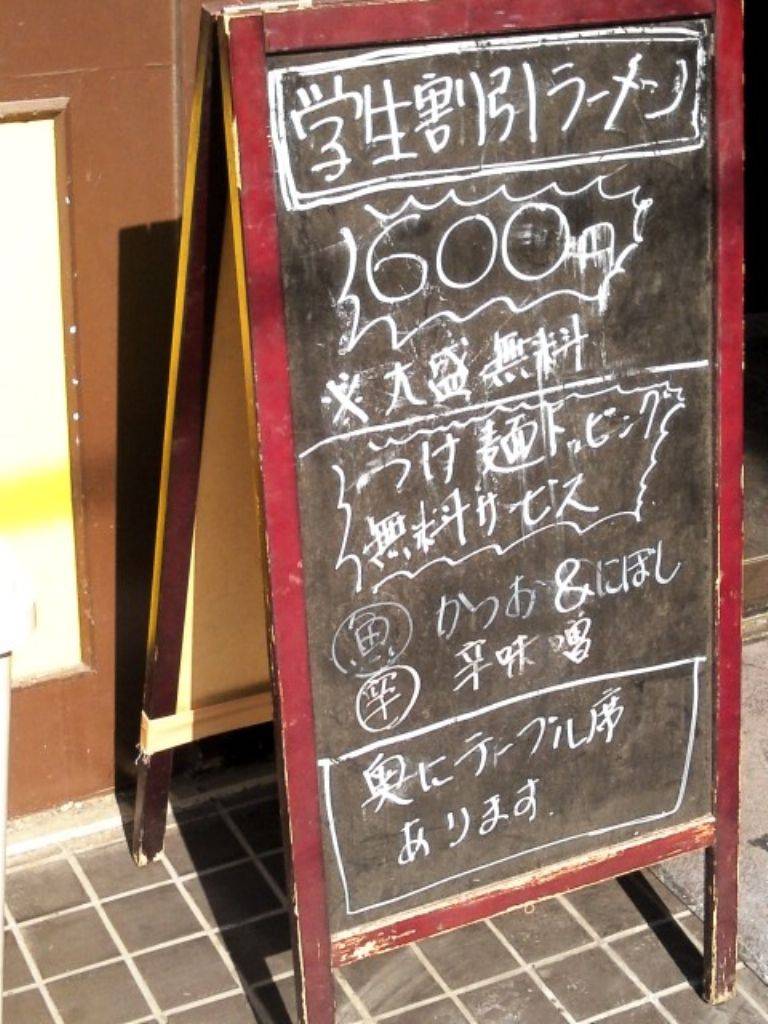 学生割引ラーメン
600円
※大盛無料
つけ麺トッピング
無料サービス
魚 かつお&にぼし
辛 辛味噌
奥にテーブル席
あります.